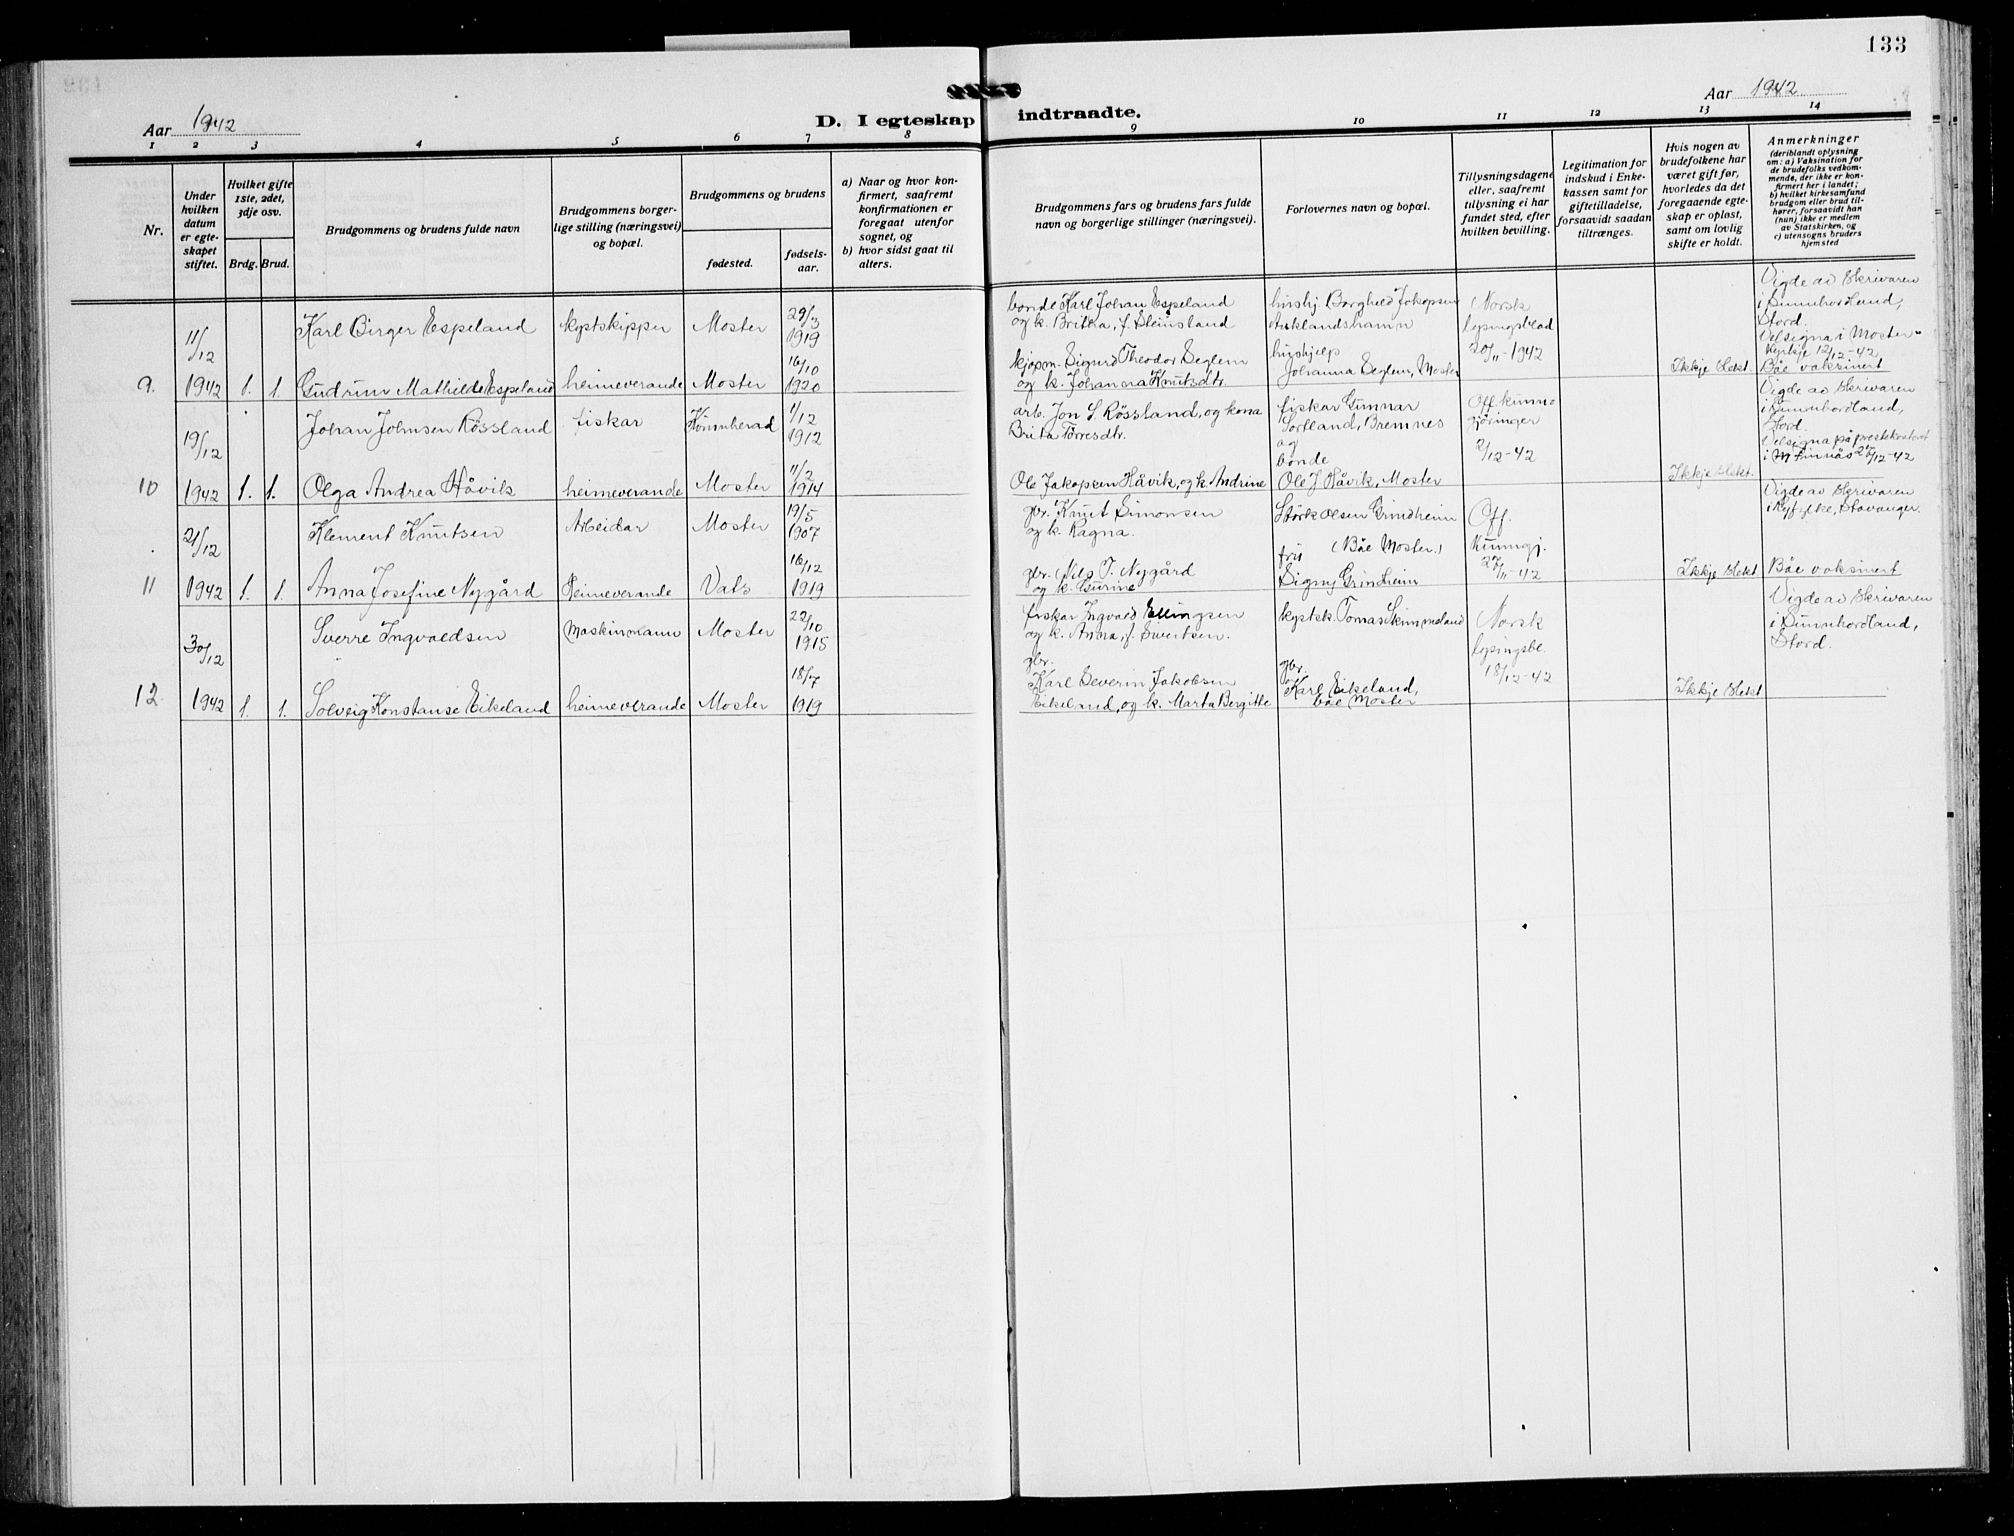 133
Aar 1942
Aar 1942
D. I egteskap indtraadte.
1 2 3 4 5 6 7 8 9 10 11 12 13 14
Nr.
Under hvilken datum er egteskapet stiftet.
Hvilket gifte 1ste, 2det, 3dje osv.
Brdg. Brud.
Brudgommens og brudens fulde navn
Brudgommens borgerlige stilling (næringsvei) og bopæl.
Brudgommens og brudens
fødested.
fødselsaar.
a) Naar og hvor konfirmert, saafremt konfirmationen er foregaat utenfor sognet, og
b) hvor sidst gaat til alters.
Brudgommens fars og brudens fars fulde navn og borgerlige stillinger (næringsvei).
Forlovernes navn og bopæl.
Tillysningsdagene eller, saafremt tillysning ei har fundet sted, efter hvilken bevilling.
Legitimation for indskud i Enkekassen samt for giftetilladelse, forsaavidt saadan tiltrænges.
Hvis nogen av brudefolkene har været gift før, hvorledes da det foregaaende egteskap er opløst, samt om lovlig skifte er holdt.
Anmerkninger
(deriblandt oplysning om: a) Vaksination for de brudefolks vedkommende, der ikke er konfirmert her i landet; b) hvilket kirkesamfund brudgom eller brud tilhører, forsaavidt han (hun) ikke er medlem av Statskirken, og c) utensogns bruders hjemsted
11/12
Karl Birger Espeland
kystskipper
Moster
29/3 1919
bonde Karl Johan Espeland
og k. Britha, f. Steinsland
hushj Borghild Jakopsen
Auklandshamn
Norsk
lysingsblad
20/11-1942
Vigde av Skrivaren
i Sunnhordland,
Stord.
Velsigna i Moster-
kyrkje 12/12-42
9. 1942 1. 1.
Gudrun Mathilde Espeland
heimeverande
Moster
16/10 1920
kjøpm. Sigurd Theodor Seglem
og k. Johanna Knutsdtr.
hushjelp
Johanna Seglem, Moster
Ikkje slekt.
Båe vaksinert
19/12
Johan Johnsen Røssland
fiskar
Kvinnherad
1/12 1912
arb. Jon S. Røssland, og kona
Brita Torresdtr.
fiskar Gunnar
Sortland, Bremnes
og
bonde
Off kunn-
gjøringer
2/12-42
Vigde av Skrivaren
i Sunnhordland,
Stord.
Velsigna på prestekontoret
i Finnås 26/12-42
10 1942 1. 1.
Olga Andrea Håvik
heimeverande
Moster
11/2 1914
Ole Jakopsen Håvik, og k. Andrine
Ole J Håvik, Moster
Ikkje slekt.
21/12
Klement Knutsen
Arbeidar
Moster
19/5 1907
gbr. Knut Simonsen
og k. Ragna.
Størk Olsen Grindheim
(Båe Moster.)
Off.
Kunngj.
27/11-42
Vigde av Skrivaren
i Ryfylke, Stavanger.
11 1942 1. 1.
Anna Josefine Nygård
Heimeverande
Vats
16/12 1919
gbr. Nils T. Nygård
og k. Gurine
fru
Signy Grindheim
Ikkje slekt
Båe vaksinert
30/12
Sverre Ingvaldsen
Maskinmann
Moster
22/10 1915
fiskar Ingvald Ellingsen
og k. Anna, f. Sivertsen.
kystsk. Tomas Skimmeland
Norsk
lysingsbl.
18/12-42
Vigde av Skrivaren
i Sunnhordland,
Stord.
12. 1942 1. 1.
Solveig Konstanse Eikeland
heimeverande
Moster
18/7 1919
gbr.
Karl Severin Jakobsen
Eikeland, og k. Marta Bergitte
gbr.
Karl Eikeland,
båe Moster
Ikkje slekt